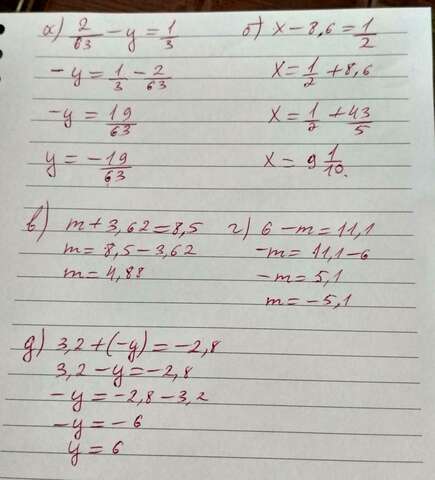 а) 2/63 - y = 1/3
-y = 1/3 - 2/63
-y = 19/63
y = -19/63
б) x - 8,6 = 1/2
x = 1/2 + 8,6
x = 1/2 + 43/5
x = 9 1/10.
в) m + 3,62 = 8,5
m = 8,5 - 3,62
m = 4,88
г) 6 - m = 11,1
-m = 11,1 - 6
-m = 5,1
m = -5,1
д) 3,2 + (-y) = -2,8
3,2 - y = -2,8
-y = -2,8 - 3,2
-y = -6
y = 6